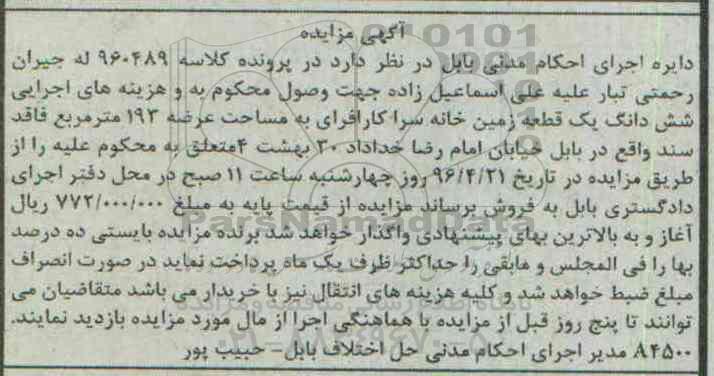 آگهی مزایده
دایره اجرای احکام مدنی بابل در نظر دارد در پرونده کلاسه ۹۶۰۴۸۹ له جیران
رحمتی تبار علیه علی اسماعیل زاده جهت وصول محکوم به و هزینه های اجرایی
شش دانگ یک قطعه زمین خانه سرا کارافرای به مساحت عرضه ۱۹۳ مترمربع فاقد
سند واقع در بابل خیابان امام رضا خداداد ۳۰ بهشت ۴متعلق به محکوم علیه را از
طریق مزایده در تاریخ ۹۶/۴/۲۱ روز چهارشنبه ساعت ۱۱ صبح در محل دفتر اجرای
دادگستری بابل به فروش برساند مزایده از قیمت پایه به مبلغ ۷۷۲/۰۰۰/۰۰۰ ریال
آغاز و به بالاترین بهای پیشنهادی واگذار خواهد شد برنده مزایده بایستی ده درصد
بها را فی المجلس و مابقی را حداکثر ظرف یک ماه پرداخت نماید در صورت انصراف
مبلغ ضبط خواهد شد و کلیه هزینه های انتقال نیز با خریدار می باشد متقاضیان می
توانند تا پنج روز قبل از مزایده با هماهنگی اجرا از مال مورد مزایده بازدید نمایند.
A۴۵۰۰ مدیر اجرای احکام مدنی حل اختلاف بابل- حبیب پور
ParsNamadData